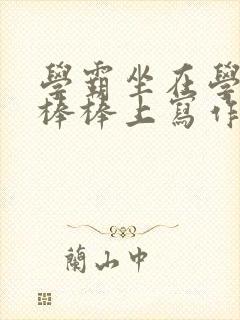 學霸坐在學
棒棒上寫作
蘭山中